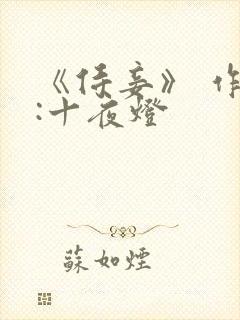 《侍妾》 作
:十夜燈
蘇如煙